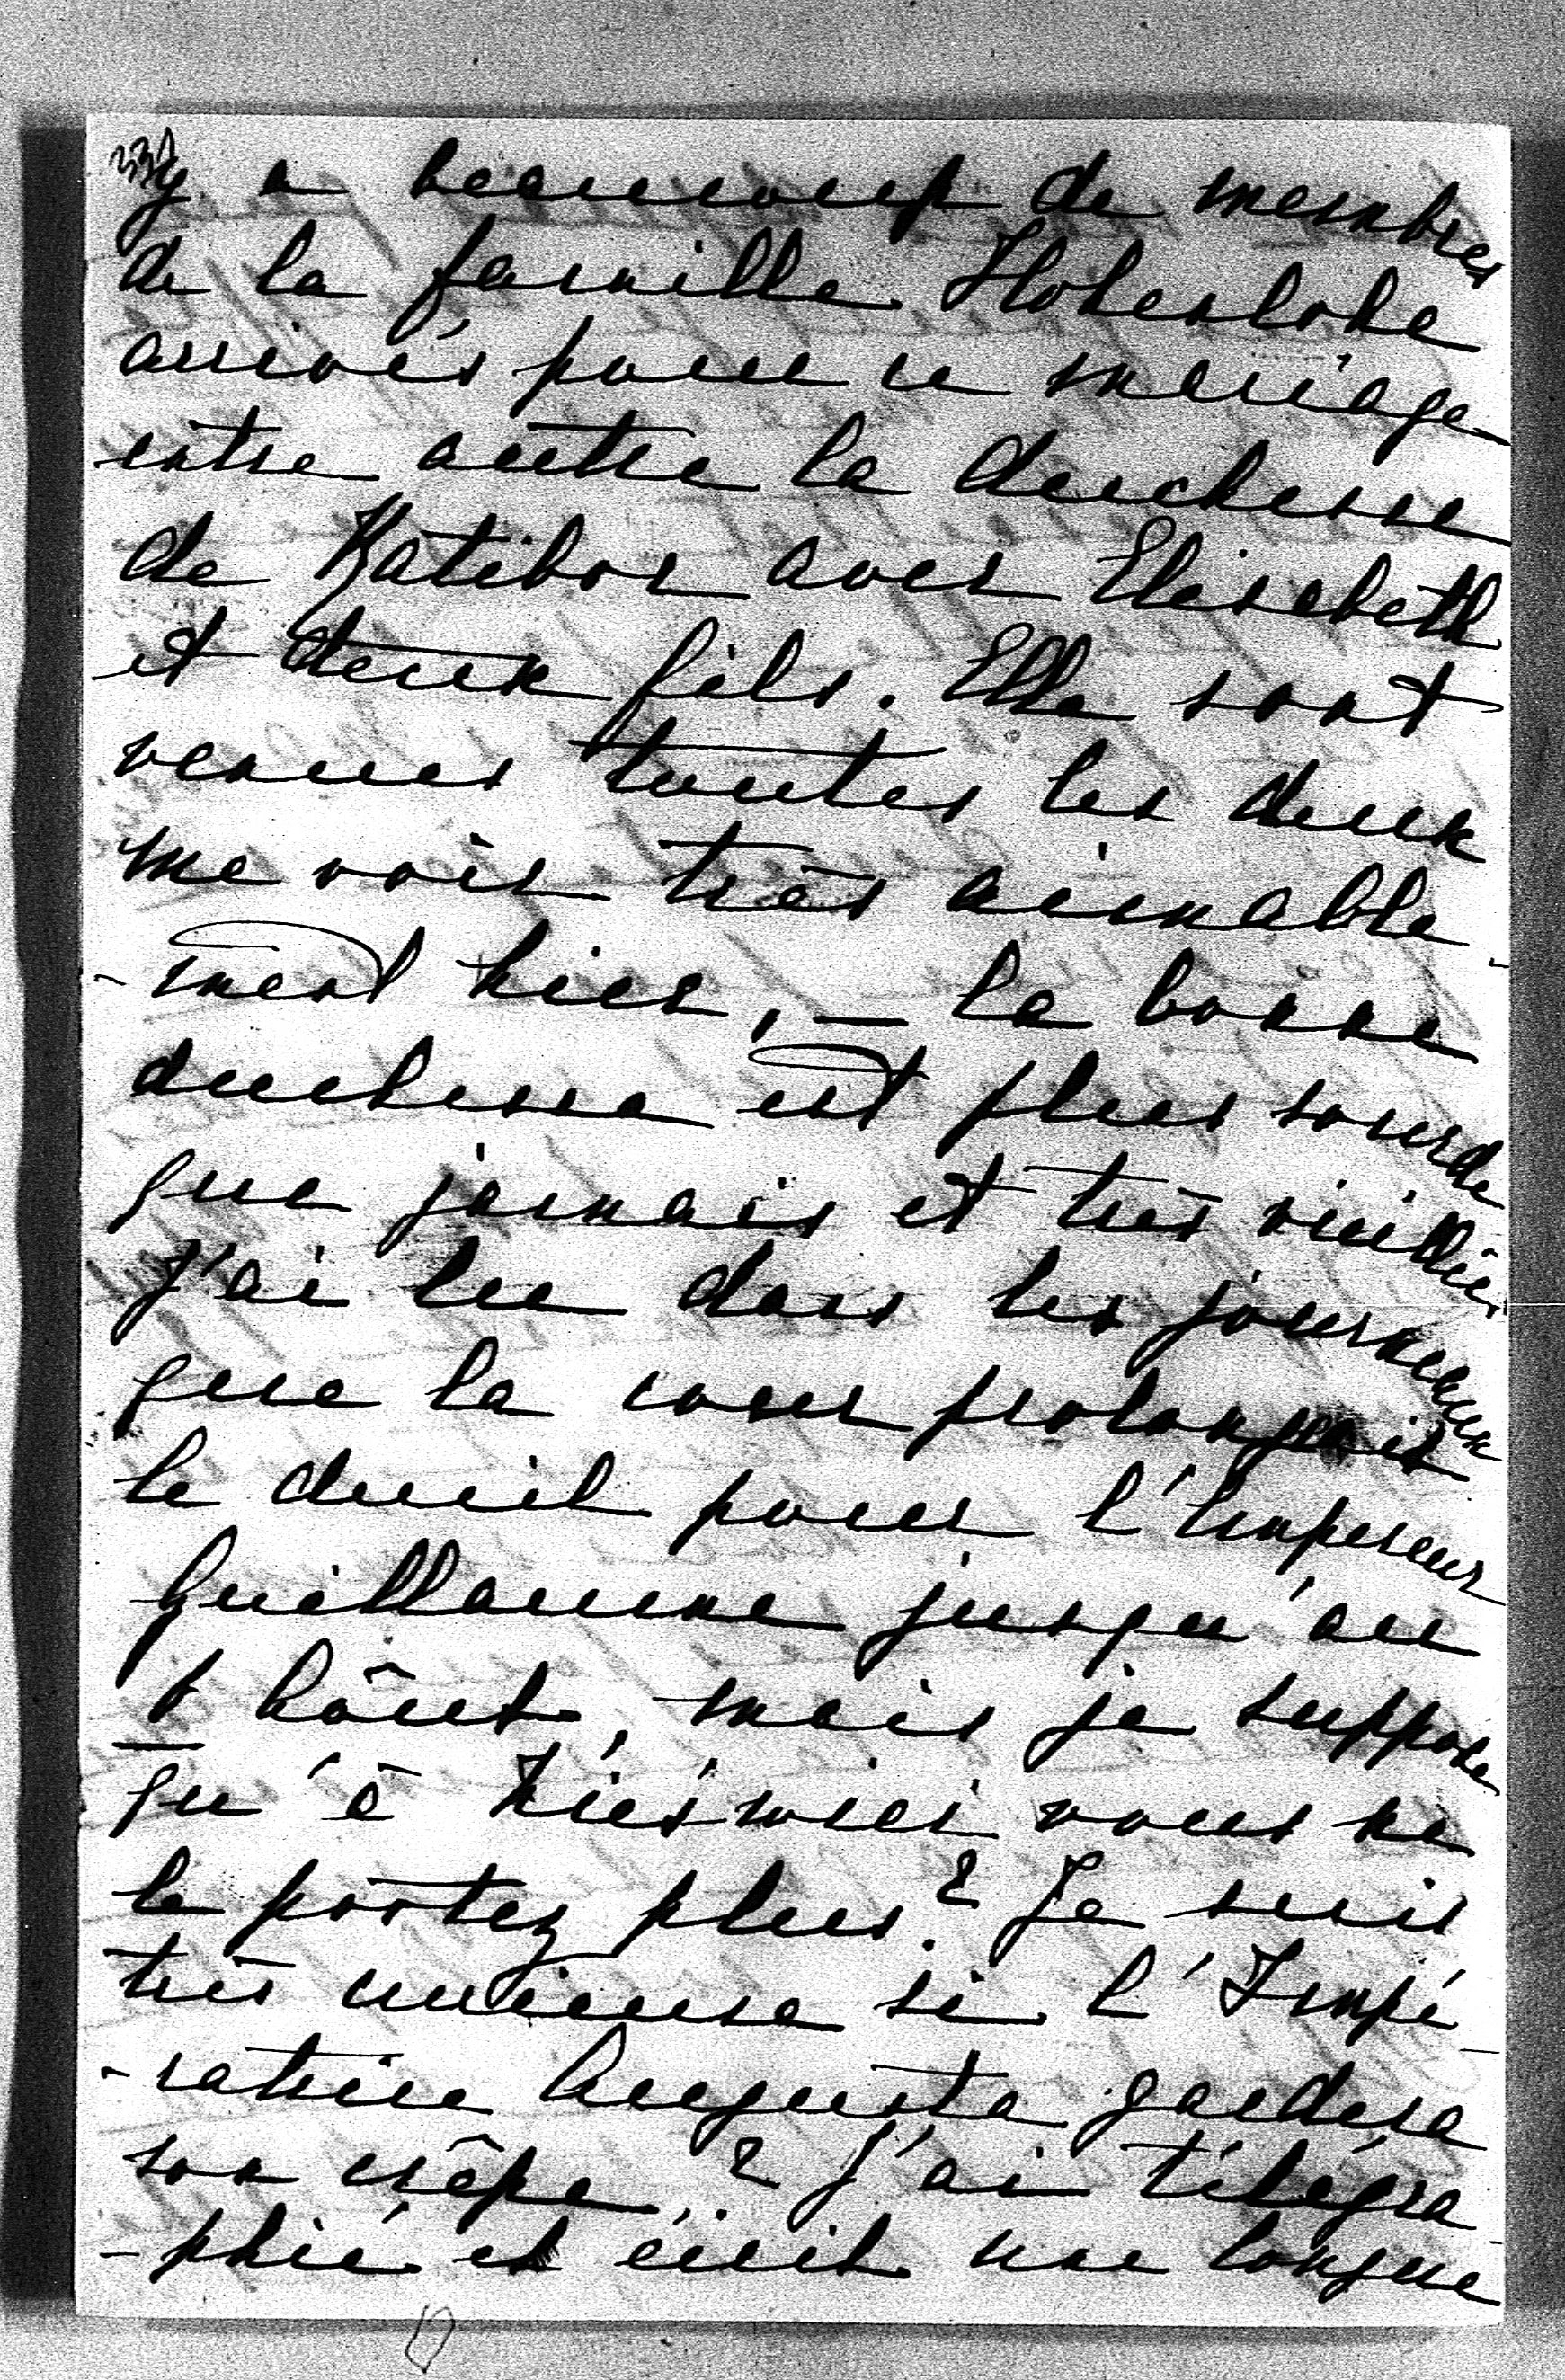 y a beaucoup de membres
de la famille Hohenlohe
arrivés pour ce mariage
entre autre la duchesse
de Ratibor avec Elisabeth
et deux fils. Elle sont
venues toutes les deux
me voir très aimable-
-ment hier, — la bonne
duchesse est plus sourde
que jamais et très vieillie.
J'ai lu dans les journaux
que la cour prolongeait
le deuil pour l'Empereur
Guillaume jusqu'au
1 Août, mais je suppose
qu'à vous ne
le portez plus? Je suis
très curieuse si l'Impé-
-ratrice Augusta gardera
son crêpe..? J'ai télégra-
-phié et écrit une longue